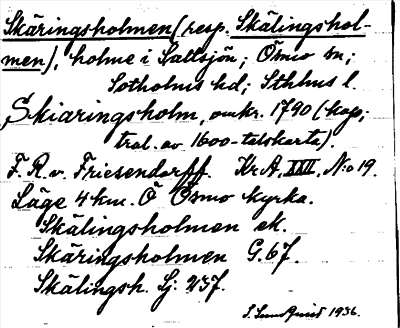 Skäringsholmen (resp. Skälingshol-
men), holme i Saltsjön; Ösmo sn;
Sotholms hd; Sthlms l.
Skiaringsholm, omkr. 1790 (kop;
tral. av 1600-talskarta).
F. R. v. Friesendorff. Kr. A. XXIII. No 19.
Läge 4 km. Ö Ösmo kyrka.
Skälingsholmen ek.
Skäringsholmen G. 67.
Skälingsh. Sj: 237.
S. Sundquist 1936.